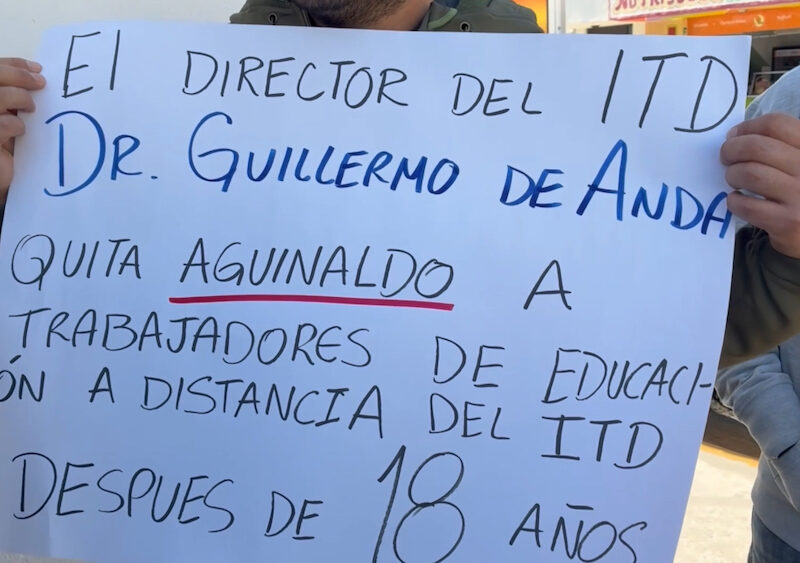 El DIRECTOR DEL ITD
DR. GUILLERMO DE ANDA
QUITA AGUINALDO A
TRABAJADORES DE EDUCACI-
ÓN A DISTANCIA DEL ITD
DESPUES DE 18 AÑOS